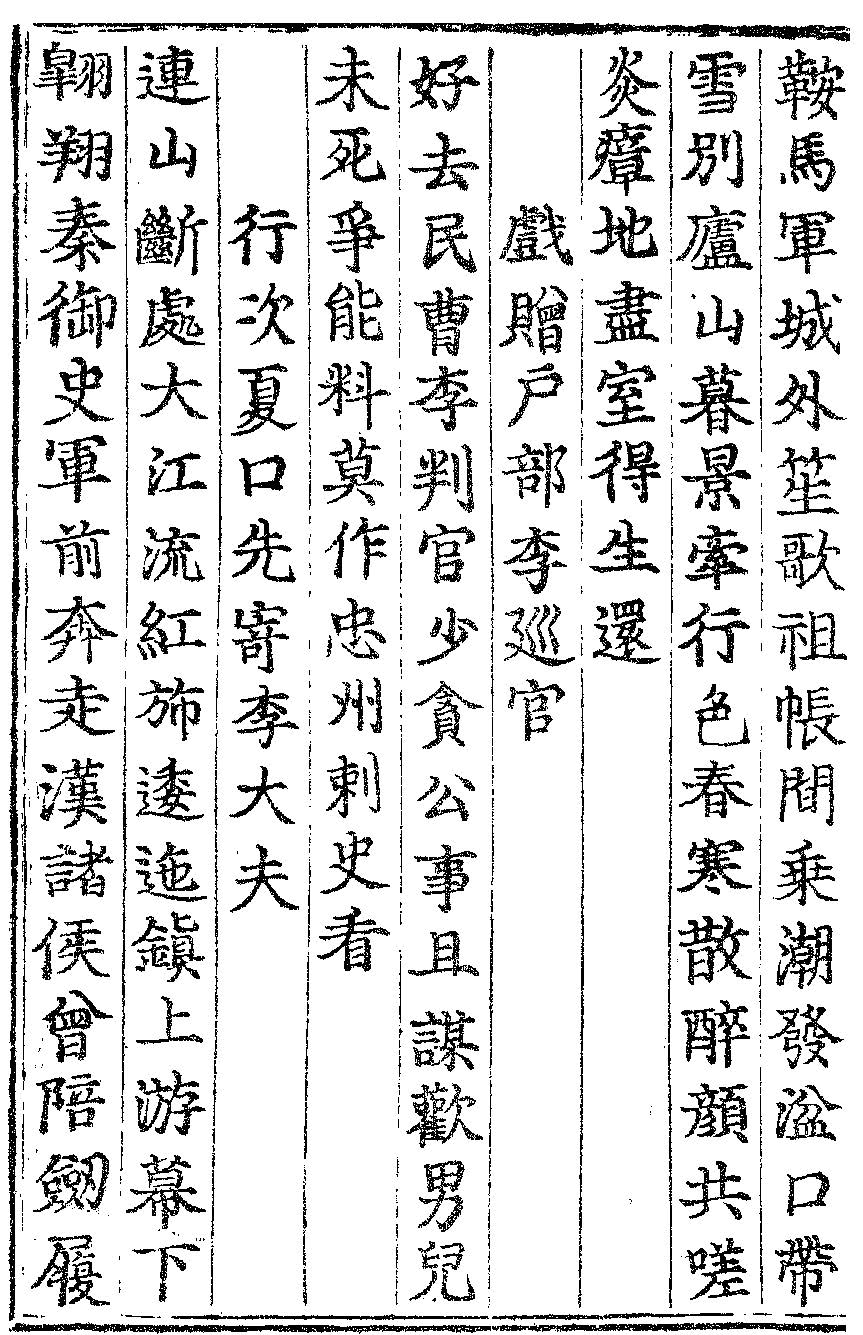 鞍馬軍城外笙歌祖帳間乗潮發湓口帶
雪別廬山暮景牽行色春寒散醉顔共嗟
炎瘴地盡室得生還
戲贈戶部李廵官
好去民曹李判官少貪公事且謀歡男兒
未死爭能料莫作忠州刺史看
行次夏口先寄李大夫
連山斷處大江流紅斾逶迤鎭上游幕下
翺翔秦御史軍前奔走漢諸侯曾陪劒履